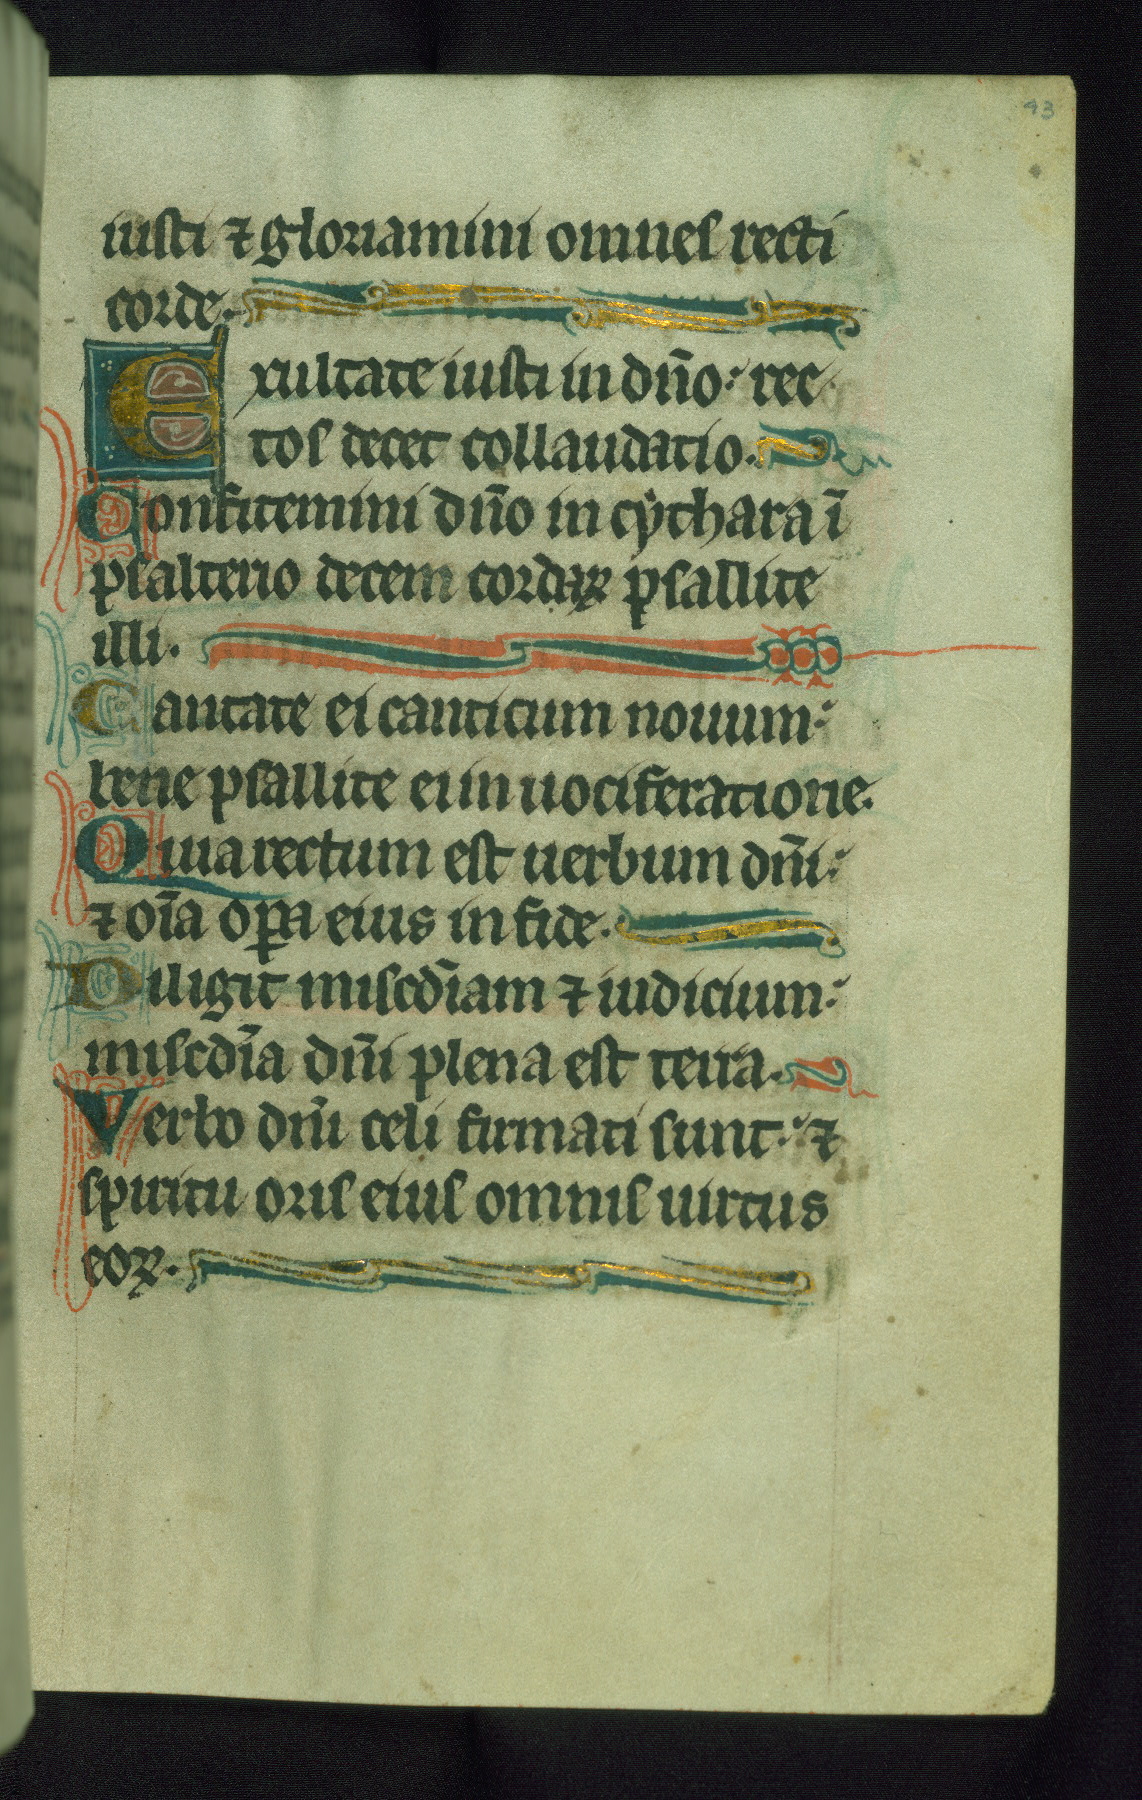 43
iusti ⁊ gloriamini omnes recti
corde.
Exultate iusti in dn̄o: rec
tos decet collaudatio.
Confitemini dn̄o in cẏthara ī
psalterio decem cordaꝝ psallite
illi.
Cantate ei canticum nouum:
bene psallite ei in uociferatione.
Quia rectum est uerbum dn̄i:
⁊ oīa oꝑa eius in fide.
Diligit miscd̄iam ⁊ iudicium:
miscd̄ia dn̄i plena est terra.
Verbo dn̄i celi firmati sunt: ⁊
spiritu oris eius omnis uirtus
eoꝝ.